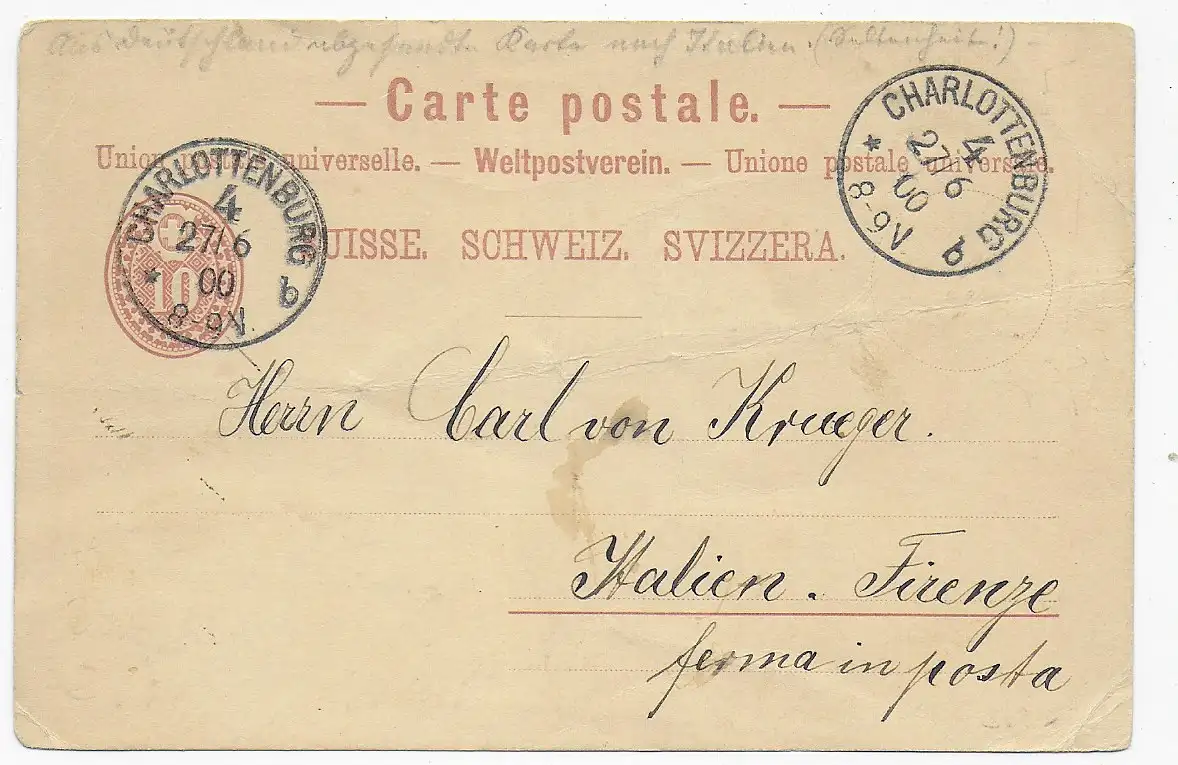 Aus Deutschland abgesandte Karte nach Italien. (Seltenheit!)
— Carte postale. —
Union universelle. — Weltpostverein. — Unione postale universale.
UISSE. SCHWEIZ. SVIZZERA.
10
CHARLOTTENBURG
4
27/6
00
8-9V.
* b
CHARLOTTENBURG
4
27 6
00
8-9V
* b
Herrn Carl von Krueger.
Italien. Firenze
ferma in posta